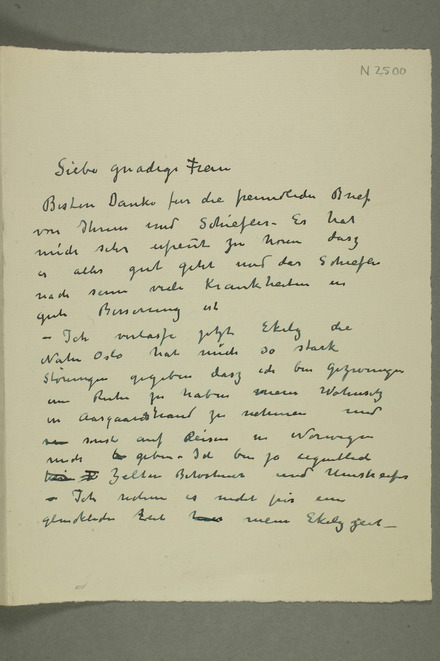 N 2500
Liebe gnädige Frau
Besten Danke für die freundliche Brief
von Ihnen und Schiefler. Es hat
mich sehr erfreut zu hören dasz
es alles gut geht und das Schiefler
nach sein viele Krankheiten in
gute Besserung ist
– Ich verlasse jetzt Ekely die
Nähe Oslo hat mich so stark
Störungen gegeben dasz ich bin gezwungen
um Ruhe zu haben meine Wohnsitz
in Aasgaardstrand zu nehmen und
sonst auf Reisen in Norwegen
mich geben – Ich bin ja eigentlich
Zelten Bewohner und Umstreifer
– Ich rechne es nicht für eine
glückliche Zeit mein Ekely zeit –